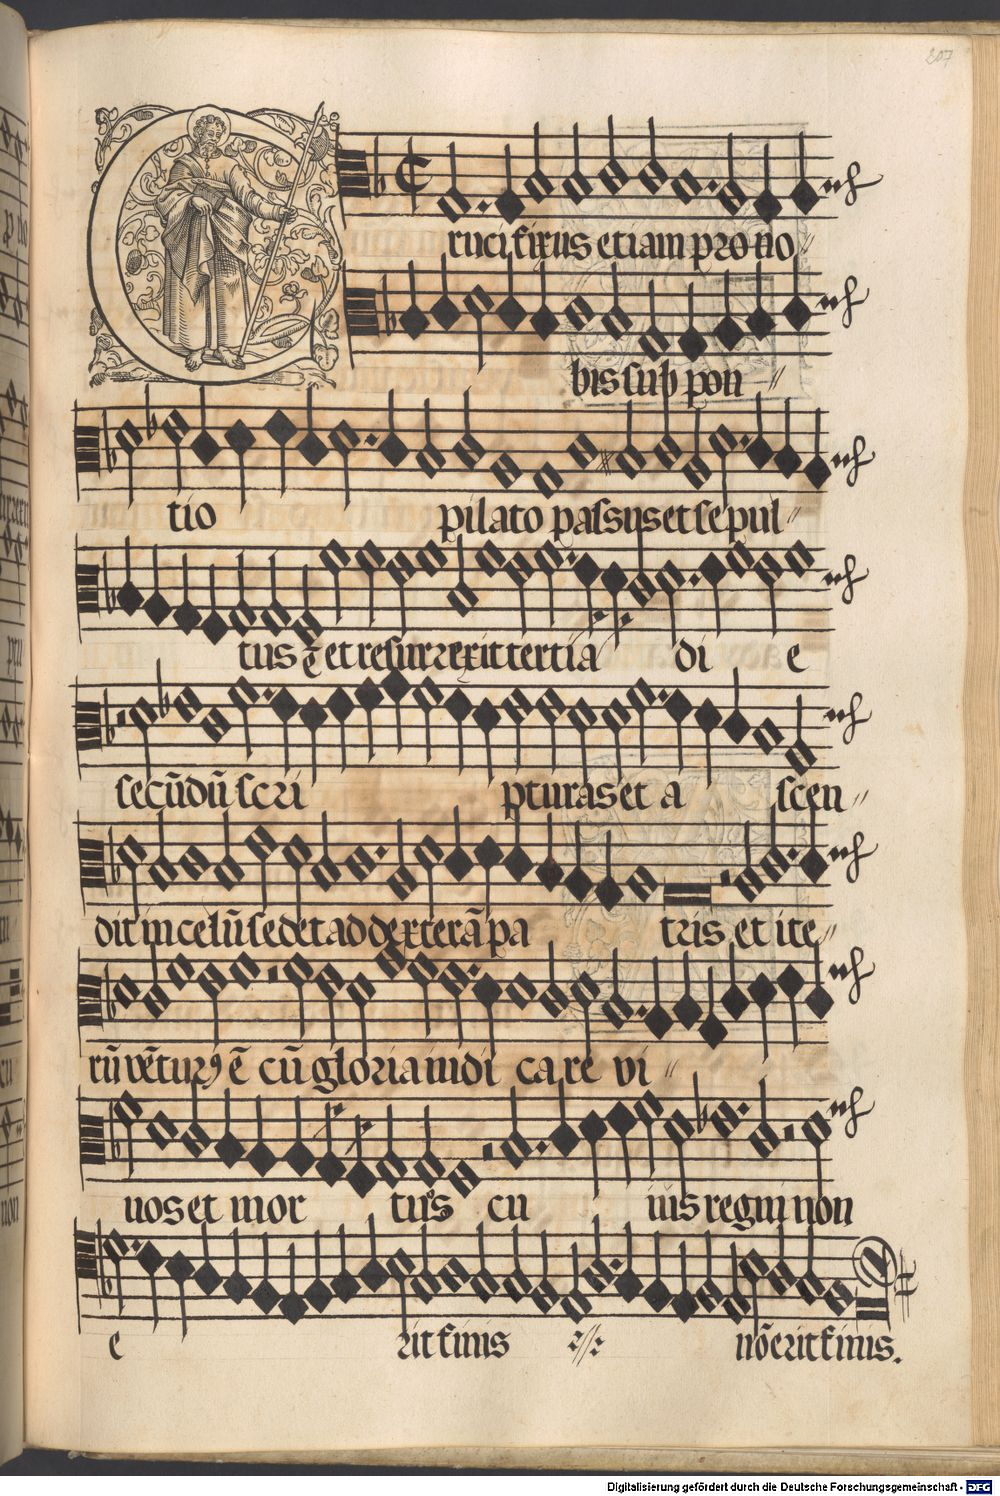 207
C rucifixus etiam pro no
bis sub pon
tio pilato passus et sepul
tus ē et resurrexit tertia di e
secūdū scri pturas et a scen
dit in celū sedet ad dexterā pa tris et ite
rū vētur⁹ ē cū gloria iudi ca re vi
uos et mor tu⁹s cu
ius regni non
e rit finis nō erit finis.
Digitalisierung gefördert durch die Deutsche Forschungsgemeinschaft - DFG